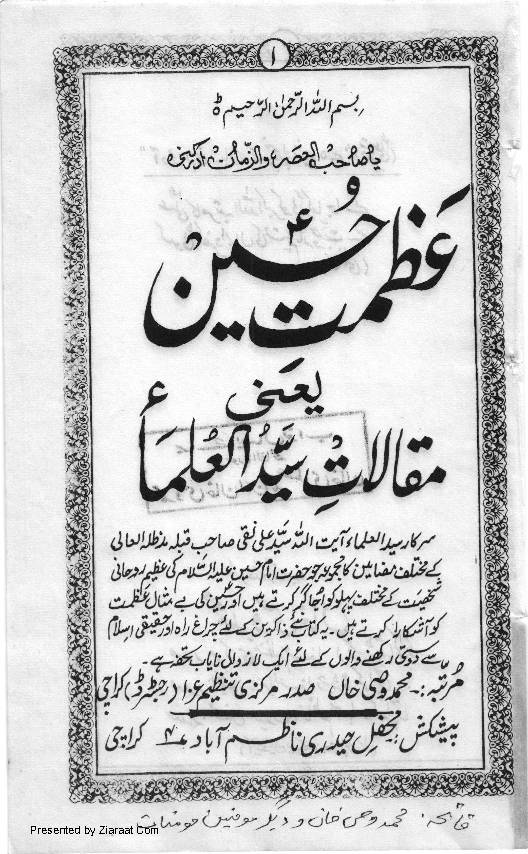 ۱
بسم اللہ الرحمٰن الرحیم ؕ
یا صاحب العصر والزمان ادرکنی
عظمت حسینؑ
یعنی
مقالاتِ سیّدُ العُلماء
سرکار سید العلماء آیت اللہ سید علی نقی صاحب قبلہ مدظلہ العالی
کے مختلف مضامین کا مجموعہ جو حضرت امام حسین علیہ السلام کی عظیم روحانی
شخصیت کے مختلف پہلو کو اُجاگر کرتے ہیں اور حسینؑ کی بے مثال عظمت
کو آشکارا کرتے ہیں۔ یہ کتاب نئے ذاکرین کے لئے چراغ راہ اور حقیقی اسلام
سے دوستی رکھنے والوں کے لئے ایک لازوالی نایاب تحفہ ہے۔
مُرتبہ:۔ محمد وصی خاں صدر مرکزی تنظیم عزا رجسٹرڈ کراچی
پیشکش: محفل حیدری ناظم آباد ۴ کراچی
فاتحہ: محمد وصی خان و دیگر مومنین مومنات
Presented by Ziaraat.Com